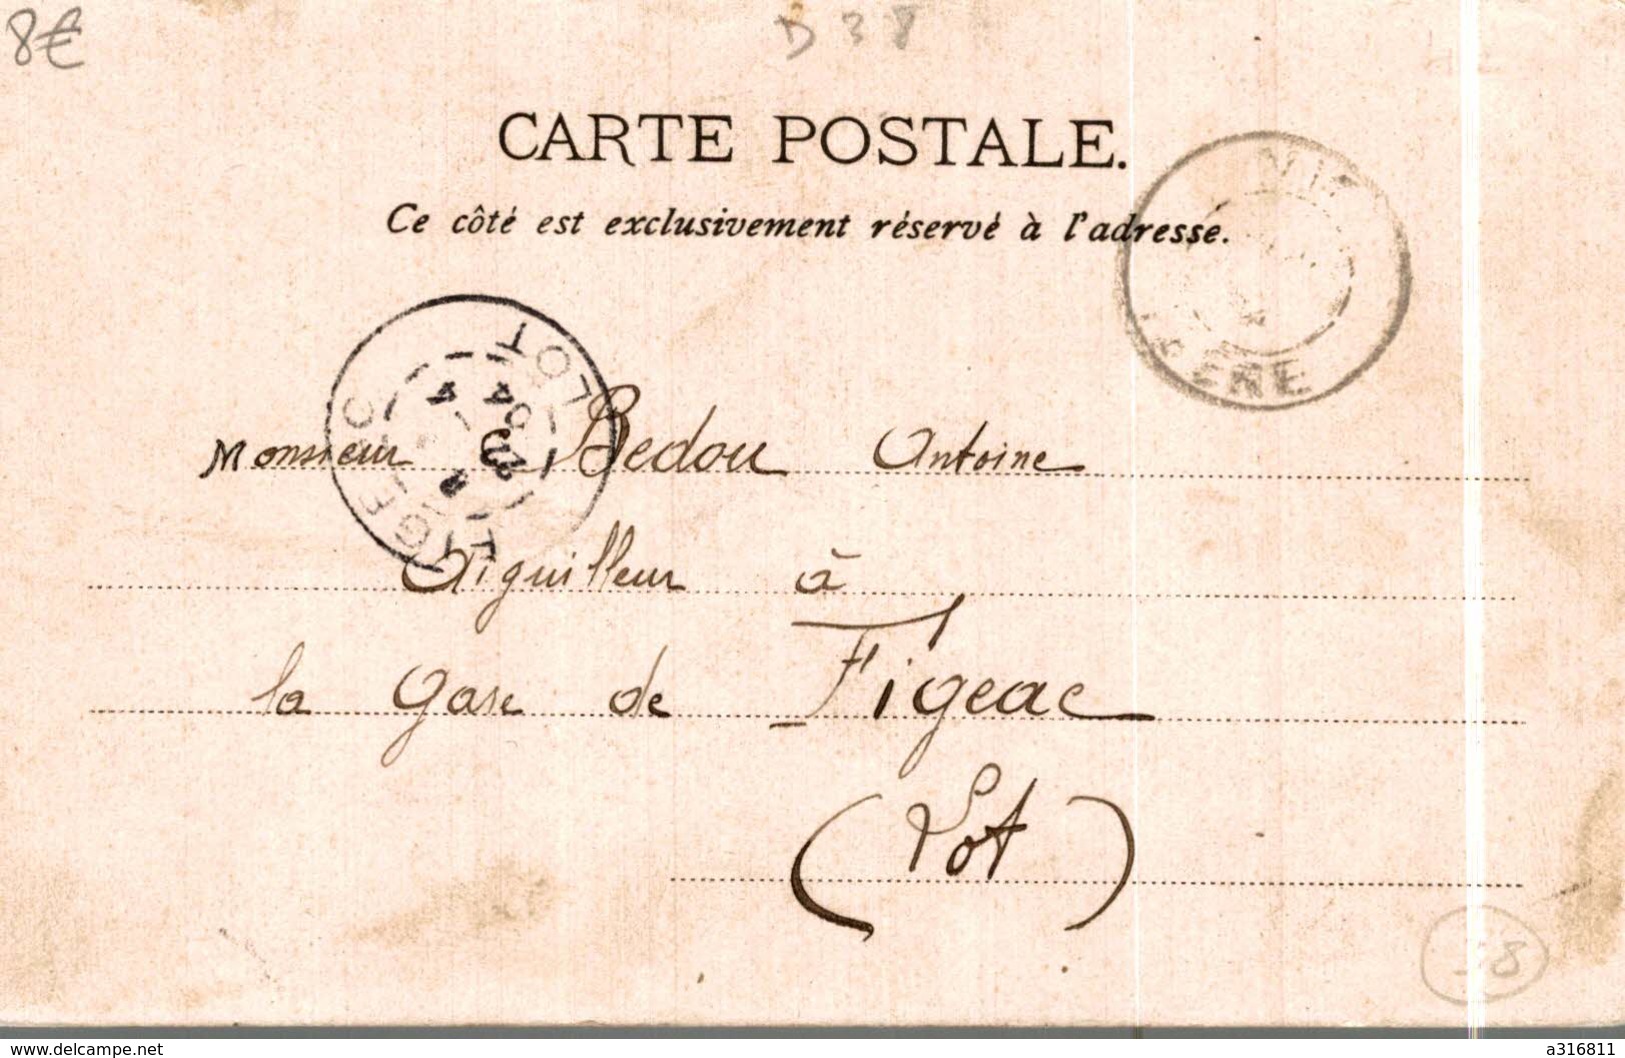 8€
D38
CARTE POSTALE.
Ce côté est exclusivement réservé à l'adresse.
LOT
FIGEAC
04
Monsieur Bedou Antoine
Aiguilleur à
la gare de Figeac
(Lot)
38
www.delcampe.net
a316811